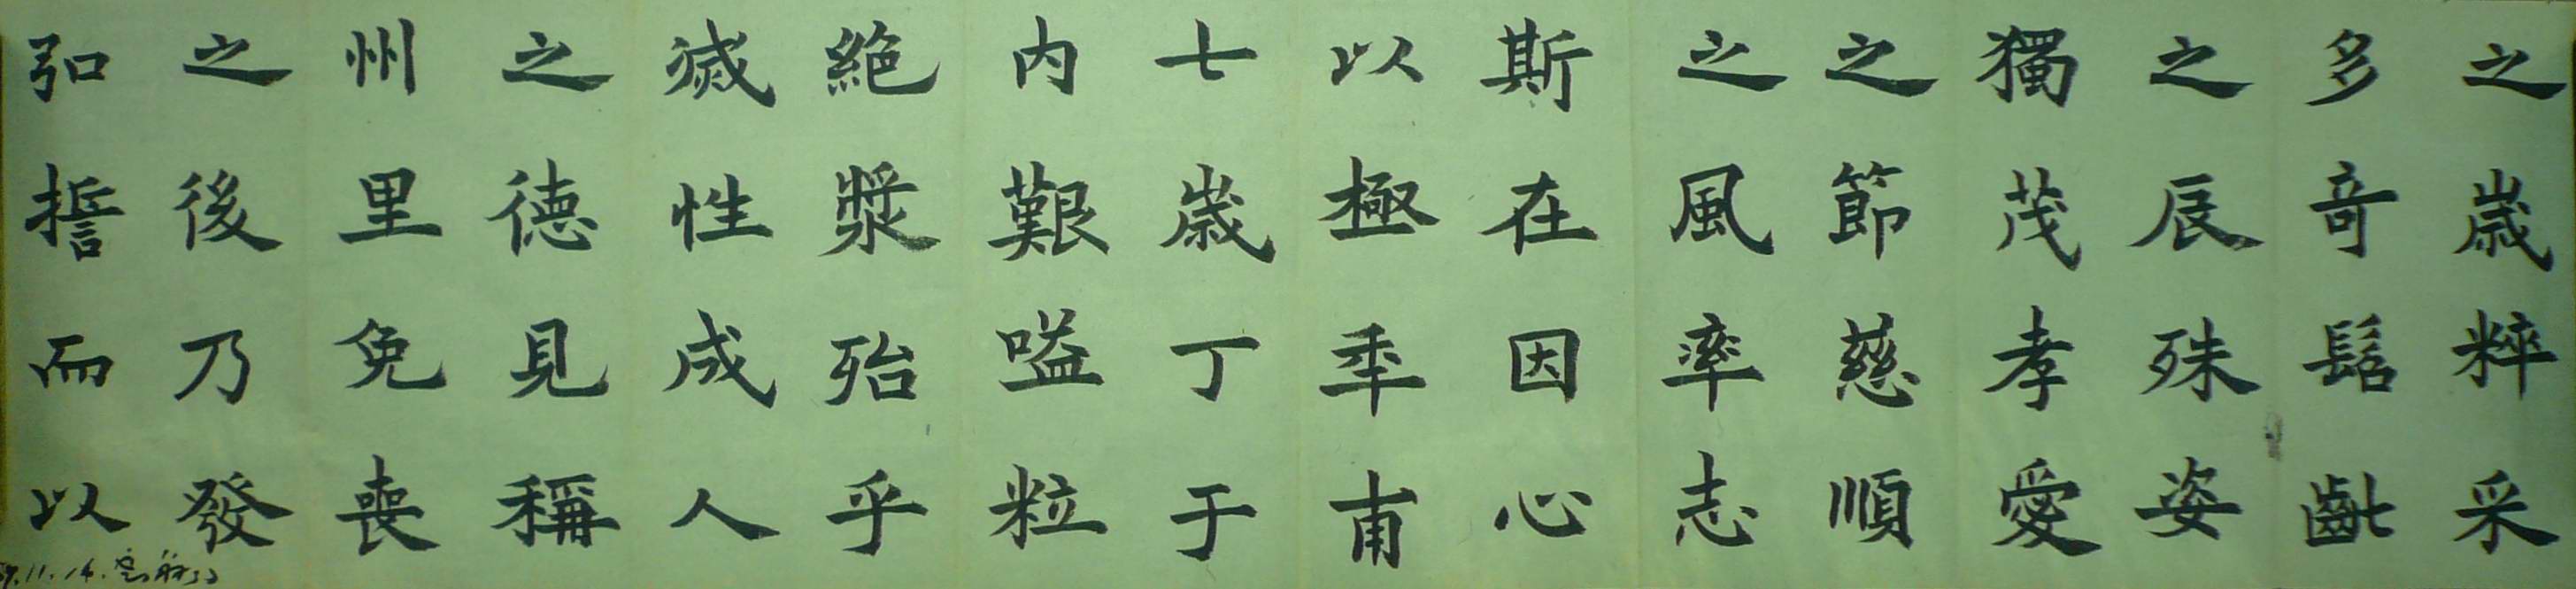 之歲粹采
多奇髫齔
之辰殊姿
獨茂孝愛
之節慈順
之風率志
斯在因心
以極年甫
七歲丁于
內艱嗌粒
絕漿殆乎
滅性成人
之德見稱
州里免喪
之後乃發
弘誓而以
11.14.